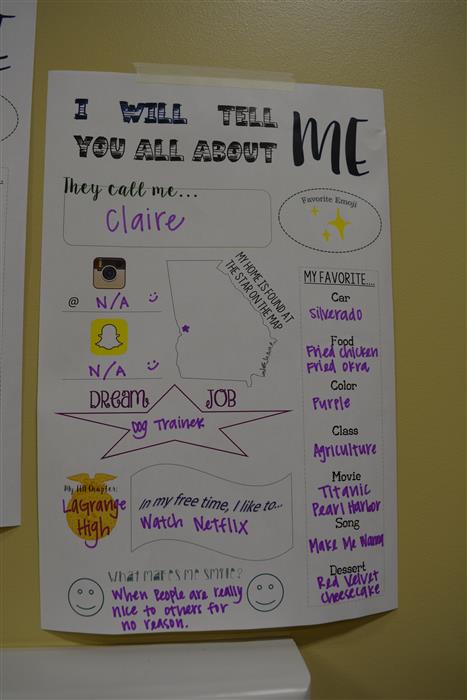 I WILL TELL
YOU ALL ABOUT
ME
They call me...
Claire
Favorite Emoji
@ N/A
N/A
MY HOME IS FOUND AT
THE STAR ON THE MAP
DREAM JOB
Dog Trainer
My FFA Chapter:
LaGrange
High
In my free time, I like to...
Watch Netflix
What makes me smile?
When people are really
nice to others for
no reason.
MY FAVORITE....
Car
Silverado
Food
Fried chicken
Fried okra
Color
Purple
Class
Agriculture
Movie
Titanic
Pearl Harbor
Song
Make Me Wanna
Dessert
Red Velvet
Cheesecake